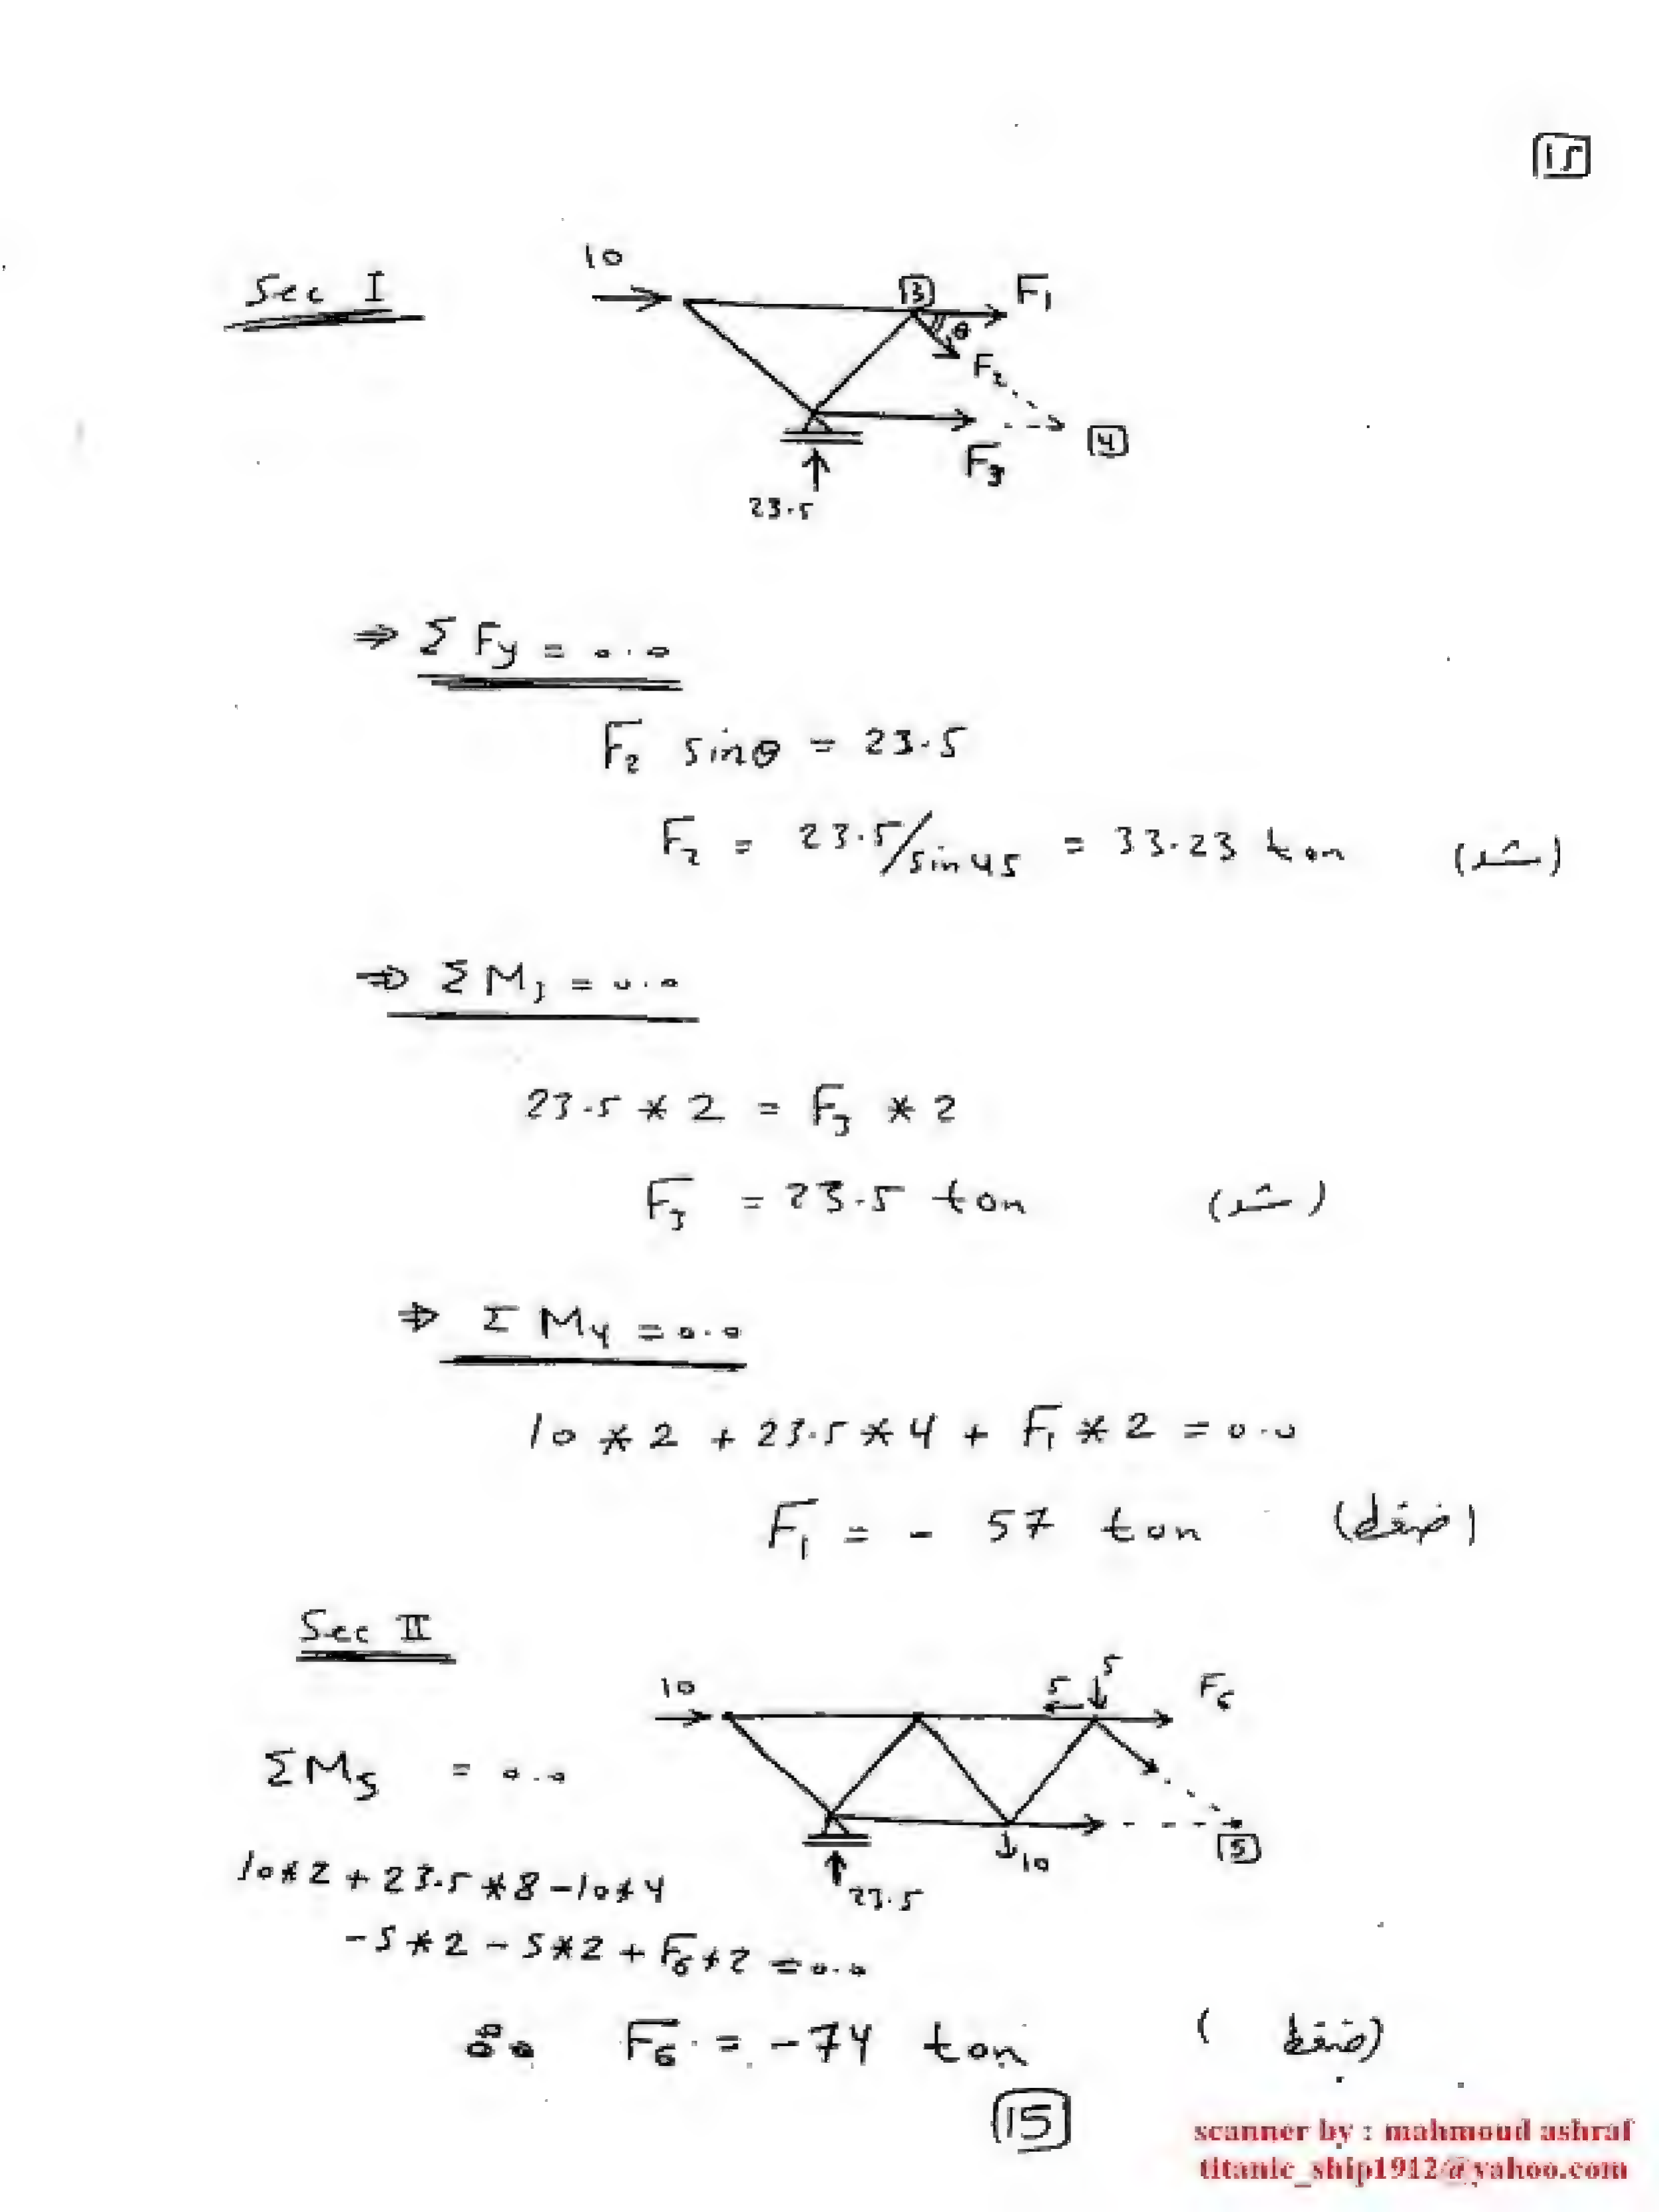 15
Sec I
10
3
F1
θ
F2
4
F3
23.5
⇒ Σ Fy = 0.0
F2 sinθ = 23.5
F2 = 23.5/sin 45 = 33.23 ton (شد)
⇒ Σ M3 = 0.0
23.5 * 2 = F3 * 2
F3 = 23.5 ton (شد)
⇒ Σ M4 = 0.0
10 * 2 + 23.5 * 4 + F1 * 2 = 0.0
F1 = - 57 ton (ضغط)
Sec II
10
5
5
F6
ΣM5 = 0.0
5
10
23.5
10*2 + 23.5 * 8 - 10*4
- 5 * 2 - 5 * 2 + F6 * 2 = 0.0
∴ F6 = - 74 ton (ضغط)
15
scanner by : mahmoud ashraf
titanic_ship1912@yahoo.com